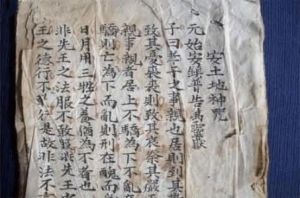 安土地神咒
元始安鎮普告萬靈嶽
子曰孝子之事親也居則致其
致其憂喪則致其哀祭則致其嚴
親事親者居上不驕為下不亂
驕則亡為下而亂則刑在醜而
日用三牲之養猶為不孝也
非先王之法服不敢服非先王
王之德行不敢行是故非法不言